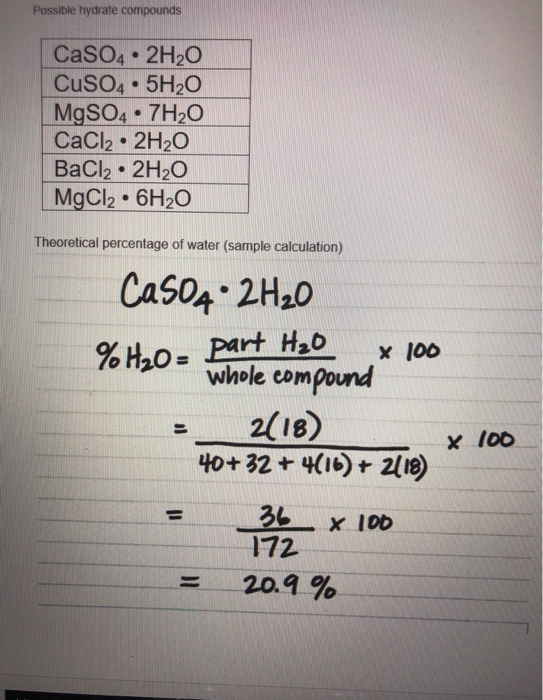 Possible hydrate compounds
CaSO₄ • 2H₂O
CuSO₄ • 5H₂O
MgSO₄ • 7H₂O
CaCl₂ • 2H₂O
BaCl₂ • 2H₂O
MgCl₂ • 6H₂O
Theoretical percentage of water (sample calculation)
CaSO₄ • 2H₂O
% H₂O = part H₂O / whole compound x 100
= 2(18) / 40 + 32 + 4(16) + 2(18) x 100
= 36 / 172 x 100
= 20.9 %